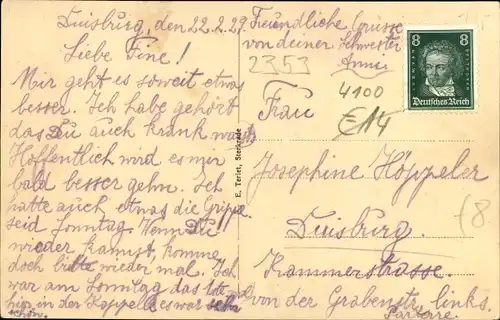 Duisburg, den 22.2.29.
Liebe Fine!
Mir geht es soweit etwas
besser. Ich habe gehört
das Du auch krank warst
Hoffentlich wird es mir
bald besser gehn. Ich
hatte auch etwas die Grippe
seid Sonntag. Wenn Du
wieder kannst, komme
doch bitte wieder mal. Ich
war am Sonntag das 1ste
hir in der Kappelle es war sehr
schön.
Freundliche Grüsse
von deiner Schwester
Anni
2353
4100
€14
8 8
Deutsches Reich
E. Terlet, Sterkrade
Frau
Josephine Höppeler
Duisburg.
Kammerstrasse.
von der Grabenstr, links.
Parterre.
(8